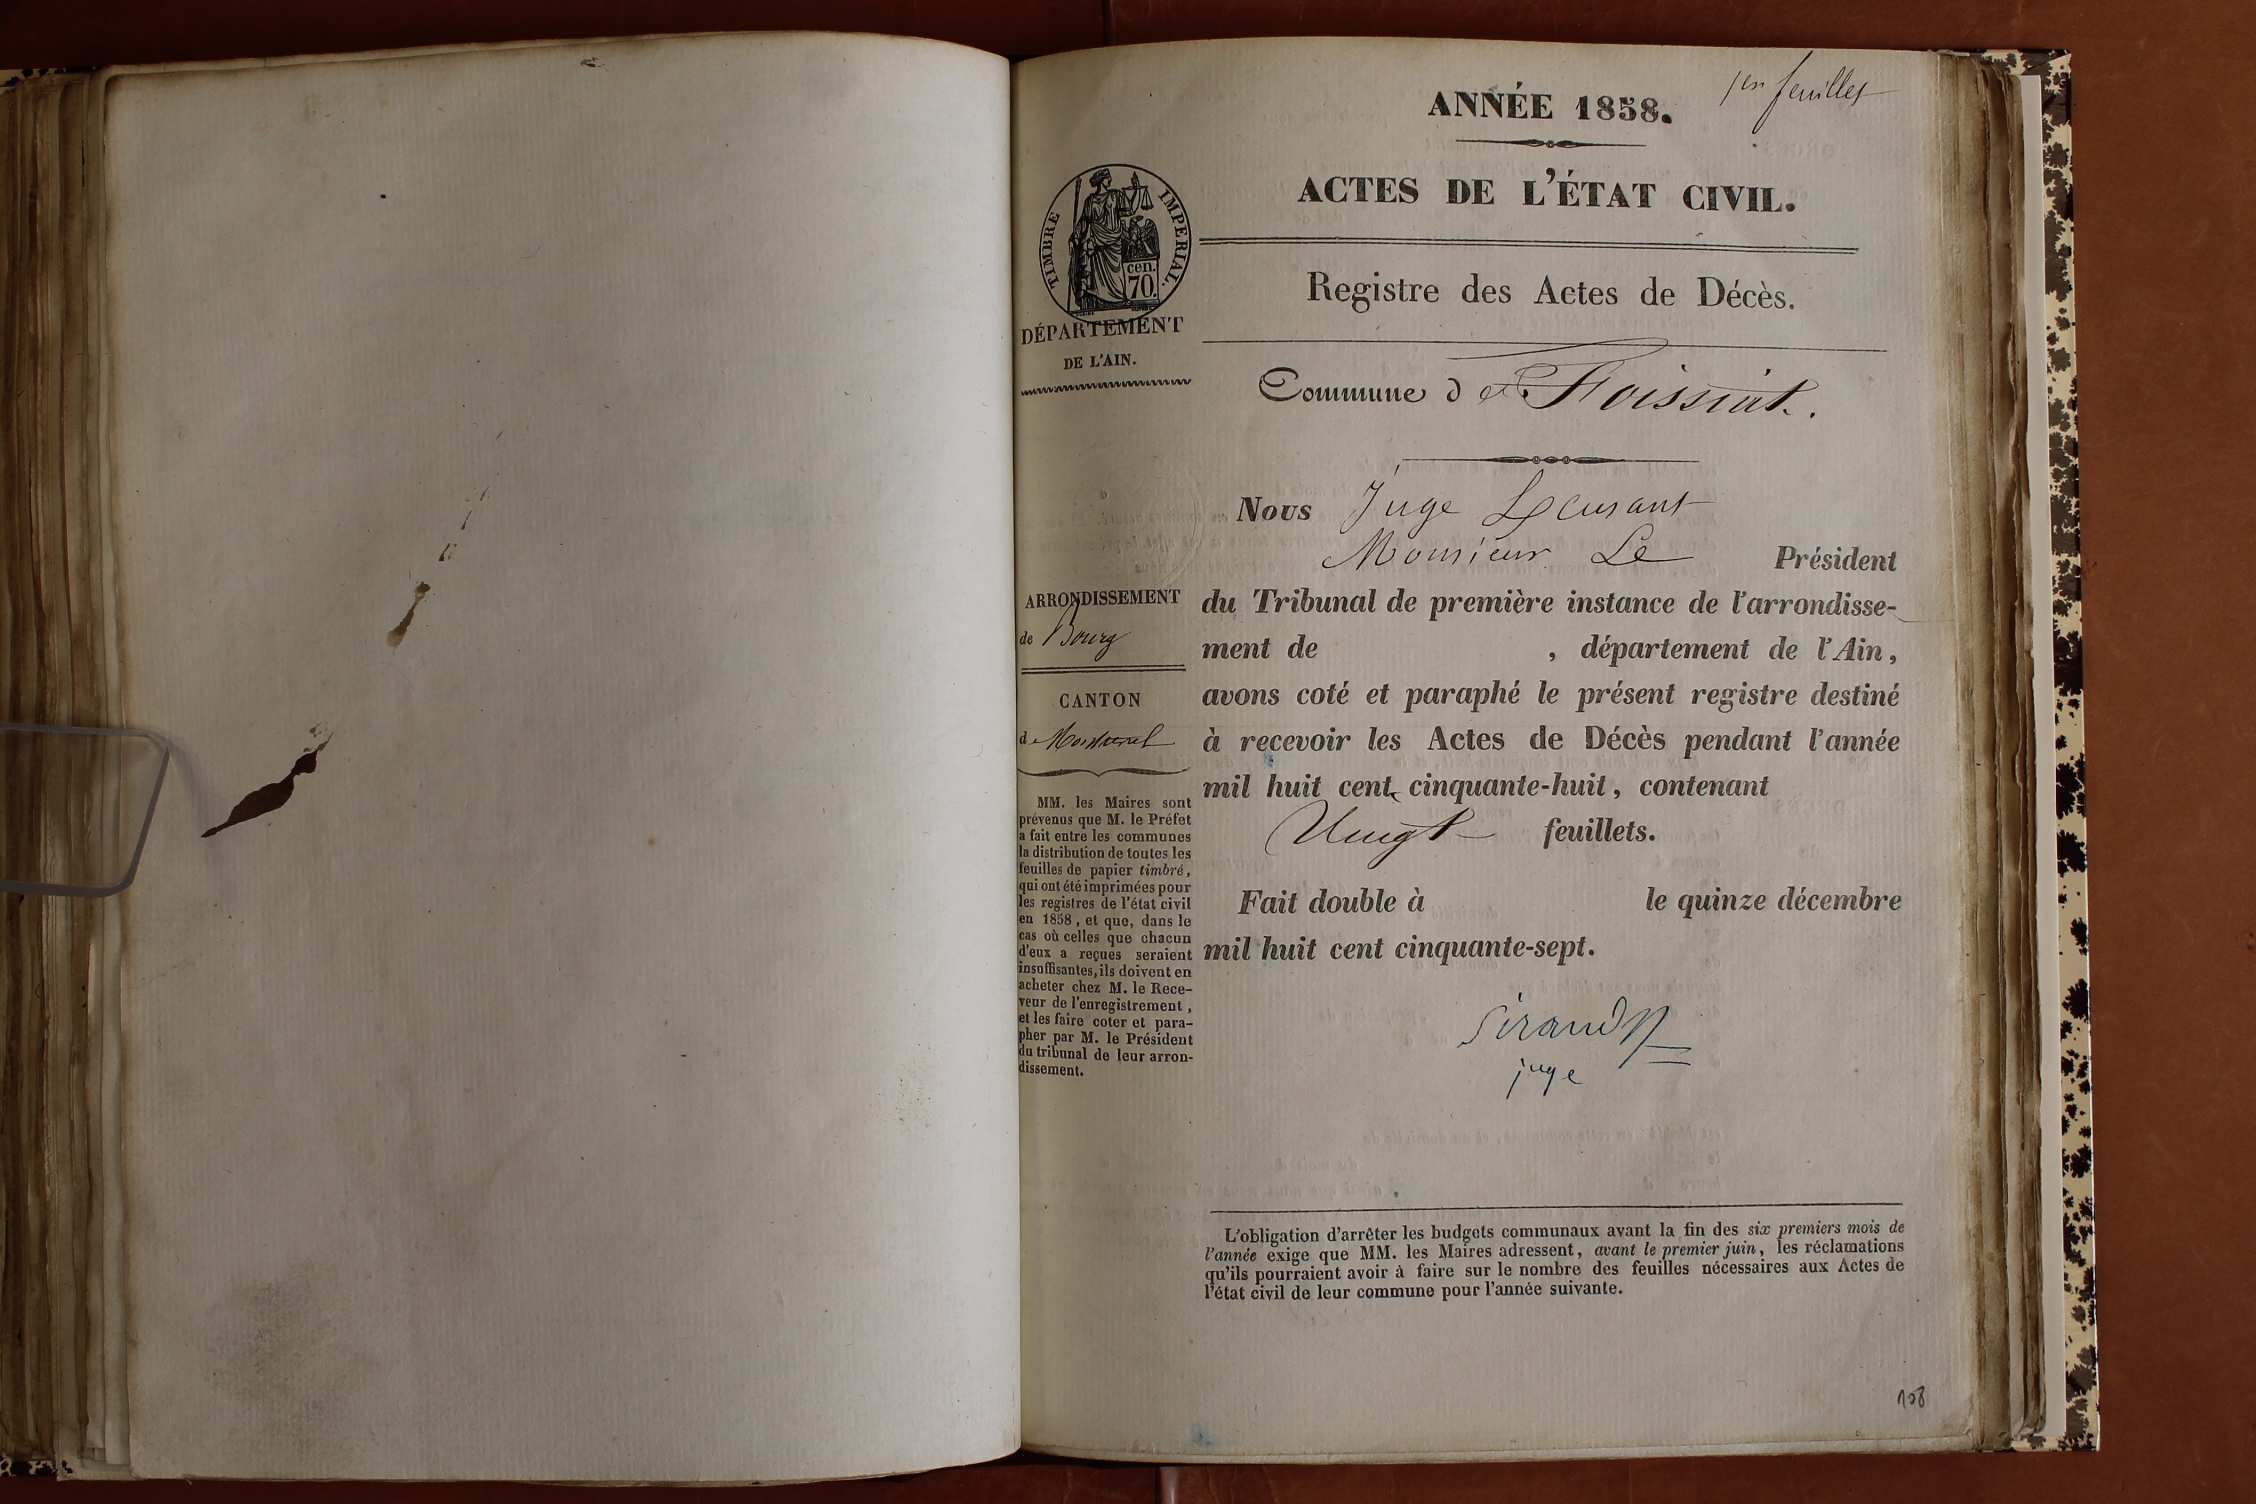 1er feuillet
ANNÉE 1858.
ACTES DE L'ÉTAT CIVIL.
TIMBRE IMPERIAL.
cen.
70.
DÉPARTEMENT
DE L'AIN.
Registre des Actes de Décès.
Commune de Foissiat.
ARRONDISSEMENT
de Bourg
CANTON
de Montrevel
MM. les Maires sont
prévenus que M. le Préfet
a fait entre les communes
la distribution de toutes les
feuilles de papier timbré,
qui ont été imprimées pour
les registres de l'état civil
en 1858, et que, dans le
cas où celles que chacun
d'eux a reçues seraient
insuffisantes, ils doivent en
acheter chez M. le Rece-
veur de l'enregistrement,
et les faire coter et para-
pher par M. le Président
du tribunal de leur arron-
dissement.
Nous Juge
Monsieur Le Président
du Tribunal de première instance de l'arrondisse-
ment de , département de l'Ain,
avons coté et paraphé le présent registre destiné
à recevoir les Actes de Décès pendant l'année
mil huit cent cinquante-huit, contenant
Vingt feuillets.
Fait double à le quinze décembre
mil huit cent cinquante-sept.
Sirand
juge
L'obligation d'arrêter les budgets communaux avant la fin des six premiers mois de
l'année exige que MM. les Maires adressent, avant le premier juin, les réclamations
qu'ils pourraient avoir à faire sur le nombre des feuilles nécessaires aux Actes de
l'état civil de leur commune pour l'année suivante.
108